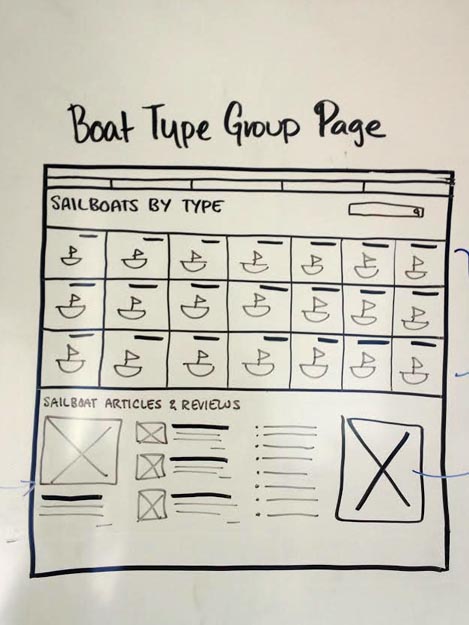 Boat Type Group Page
SAILBOATS BY TYPE
SAILBOAT ARTICLES & REVIEWS